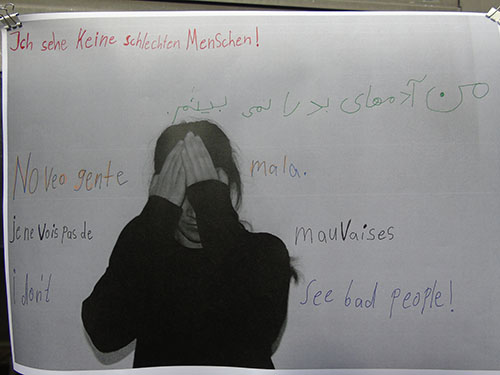 Ich sehe Keine schlechten Menschen!
من آدمهای بد را نمی بینم.
No veo gente mala.
je ne vois pas de mauvaises
i don't see bad people!